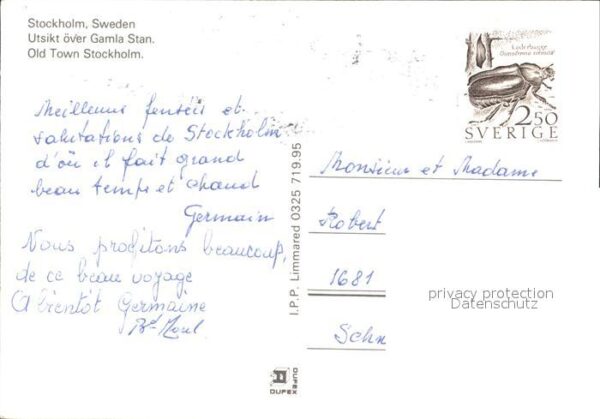 Stockholm, Sweden
Utsikt över Gamla Stan.
Old Town Stockholm.
Meilleures pensées et
salutations de Stockholm
d'où il fait grand
beau temps et chaud
Germain
Nous profitons beaucoup,
de ce beau voyage
A bientôt Germaine
I.P.P. Limmared 0325 719.95
DUFEX
DUFEX
2.50
SVERIGE
Monsieur et Madame
Robert
1681
privacy protection
Datenschutz